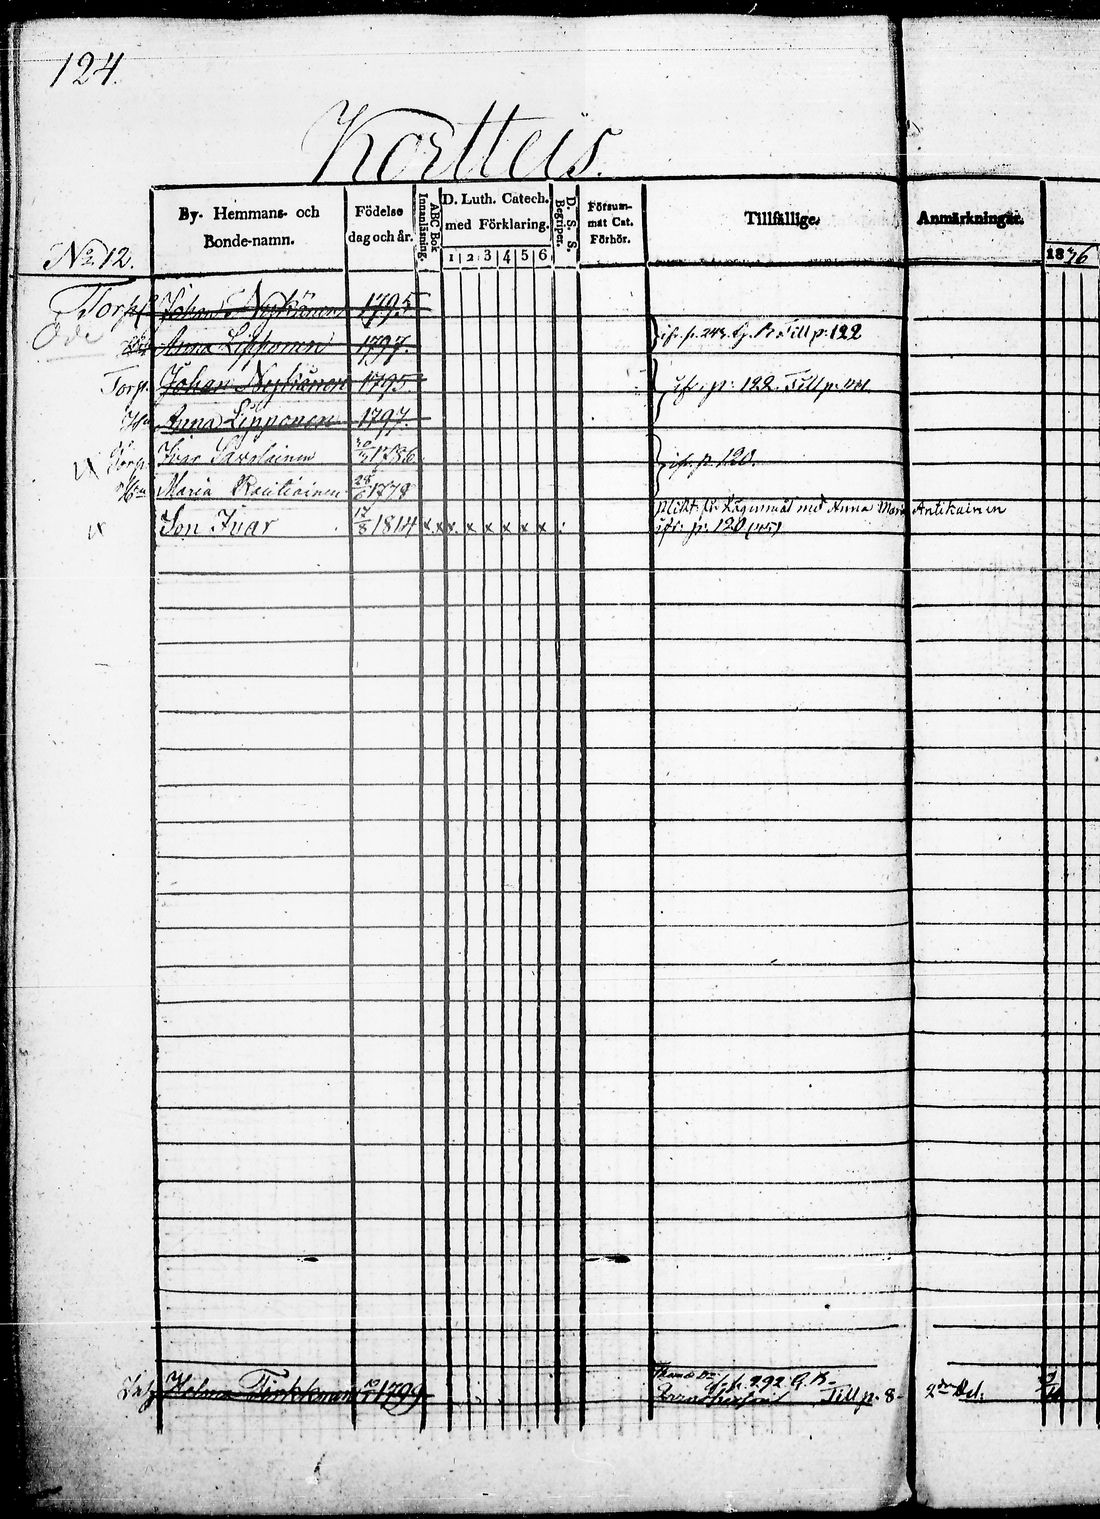 124.
Kortteis.
By- Hemmans- och Bonde-namn.
Födelse dag och år.
ABC Bok Innanläsning.
D. Luth. Catech. med Förklaring.
1 2 3 4 5 6
D. S. S. Begriper.
Försum-mat Cat. Förhör.
Tillfällige.
Anmärkningar.
1836
No 12.
Torp. Johan 1795
Öde
Anna Lipponen 1797.
ifr. p. 243. G. B. Till p. 122
Torp. Johan 1795
ifr. p. 122. Till p.
Anna Lipponen 1797.
Torp. Ivar Savolainen 1786
ifr. p. 120.
Maria Rautiainen 28/6 1778
Son Ivar 17/8 1814 x x x x x x x x
med Anna Maria Antikainen
ifr. p. 120 (45)
Helena Tirkkonen 1799
p. 292 G. B. Till p. 8 2dra del.